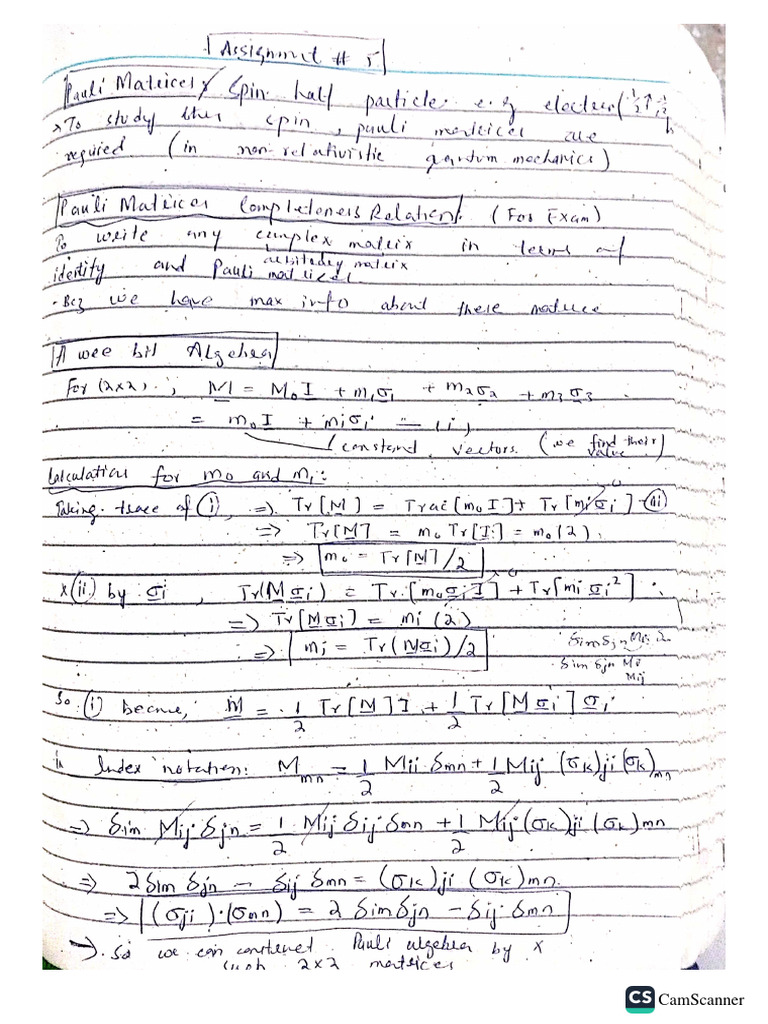 Assignment # 5
Pauli Matrices Spin half particle e.g electron
→ To study this spin, pauli matrices are
required (in non-relativistic quantum mechanics)
Pauli Matrices Completeness Relation: (For Exam)
To write any complex matrix in terms of
arbitrary matrix
identity and Pauli matrices
- Bcz we have max info about these
A wee bit Algebra
For (2x2), M = M₀I + m₁σ₁ + m₂σ₂ + m₃σ₃
= m₀I + miσi — (i)
constand vectors. (we find their value)
Calculation for m₀ and mi:
Taking trace of (i), => Tr[M] = Trac[m₀I] + Tr[miσi] - (ii) 0
=> Tr[M] = m₀ Tr[I] = m₀(2)
=> m₀ = Tr[M]/2
x(ii) by σi, Tr(Mσi) = Tr[m₀σiI] + Tr[miσi²] 0
=> Tr[Mσi] = mi(2)
=> mi = Tr(Mσi)/2
δim δjn Mi
Mij
So (i) become, M = 1/2 Tr[M]I + 1/2 Tr[Mσi]σi
In Index notation: Mmn = 1/2 Mii δmn + 1/2 Mij (σk)ji (σk)mn
=> δim Mij δjn = 1/2 Mij δij δmn + 1/2 Mij (σk)ji (σk)mn
=> 2δim δjn - δij δmn = (σk)ji (σk)mn
=> (σji)·(σmn) = 2δimδjn - δij δmn
→ So we can construct Pauli algebra by x
such 2x2 matrices
CS CamScanner